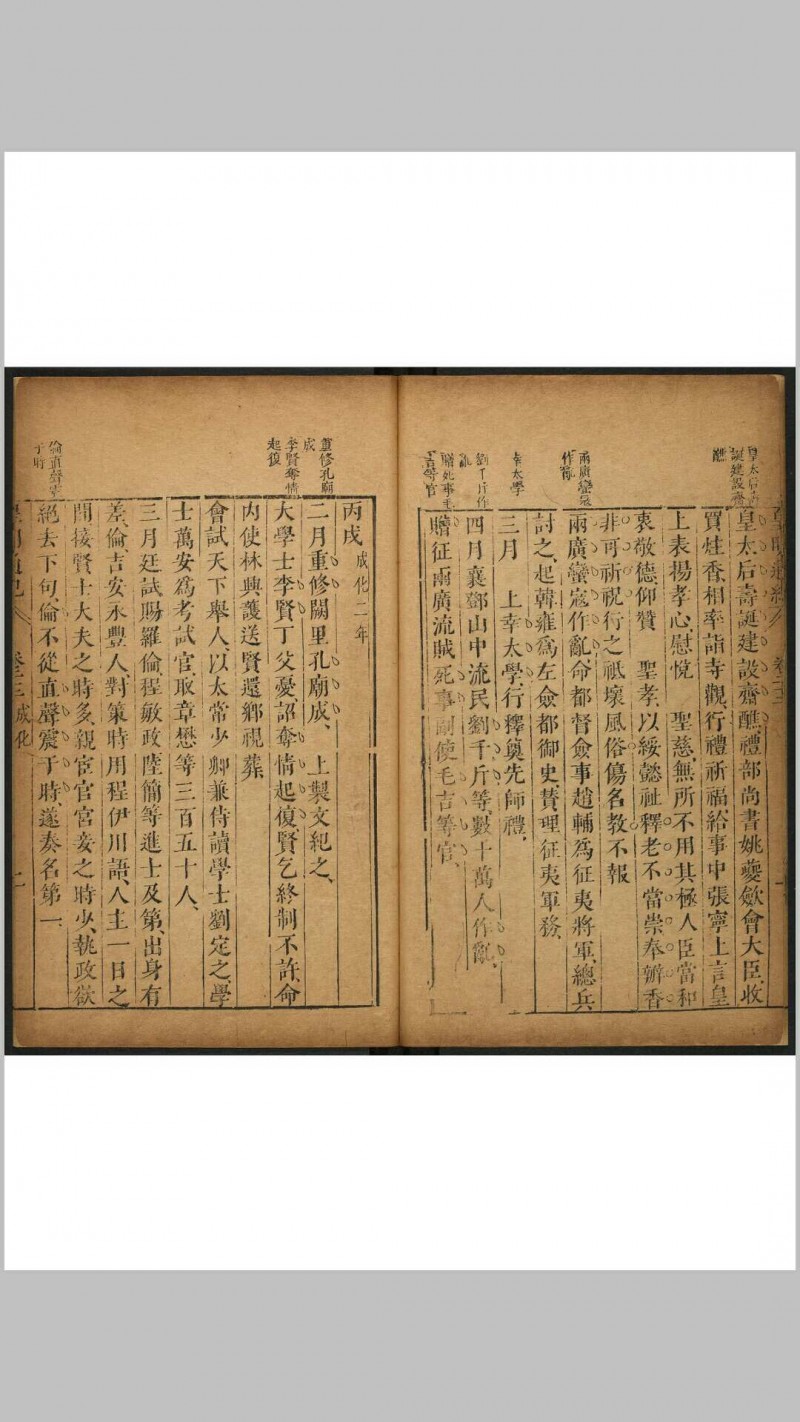 皇太后壽誕建設齋醮禮部尚書姚夔歛會大臣收
買炷香相率詣寺觀行禮祈福給事中張寧上言皇
上表揚孝心慰悅　聖慈無所不用其極人臣當和
衷敬德仰贊　聖孝以綏懿祉釋老不當崇奉辦香
非可祈祝行之祗壞風俗傷名教不報
兩廣蠻寇作亂命都督僉事趙輔爲征夷將軍總兵
討之起韓雍爲左僉都御史賛理征夷軍務
三月　上幸太學行釋奠先師禮
四月襄鄧山中流民劉千斤等數十萬人作亂
贈征兩廣流賊死事副使毛吉等官
兩廣蠻寇
作亂
幸太學
劉千斤作
亂
贈死事毛
吉等官
丙戌　成化二年
二月重修闕里孔廟成　上製文紀之
大學士李賢丁父憂詔奪情起復賢乞終制不許命
内使林興護送賢還鄉視葬
會試天下舉人以太常少卿兼侍讀學士劉定之學
士萬安爲考試官取章懋等三百五十人
三月廷試賜羅倫程敏政陸簡等進士及第出身有
差倫吉安永豐人對策時用程伊川語人主一日之
間接賢士大夫之時多親宦官宮妾之時少執政欲
絕去下句倫不從直聲震于時遂奏名第一
重修孔廟
成
李賢奪情
起復
倫直聲震
于時
卷三　成化